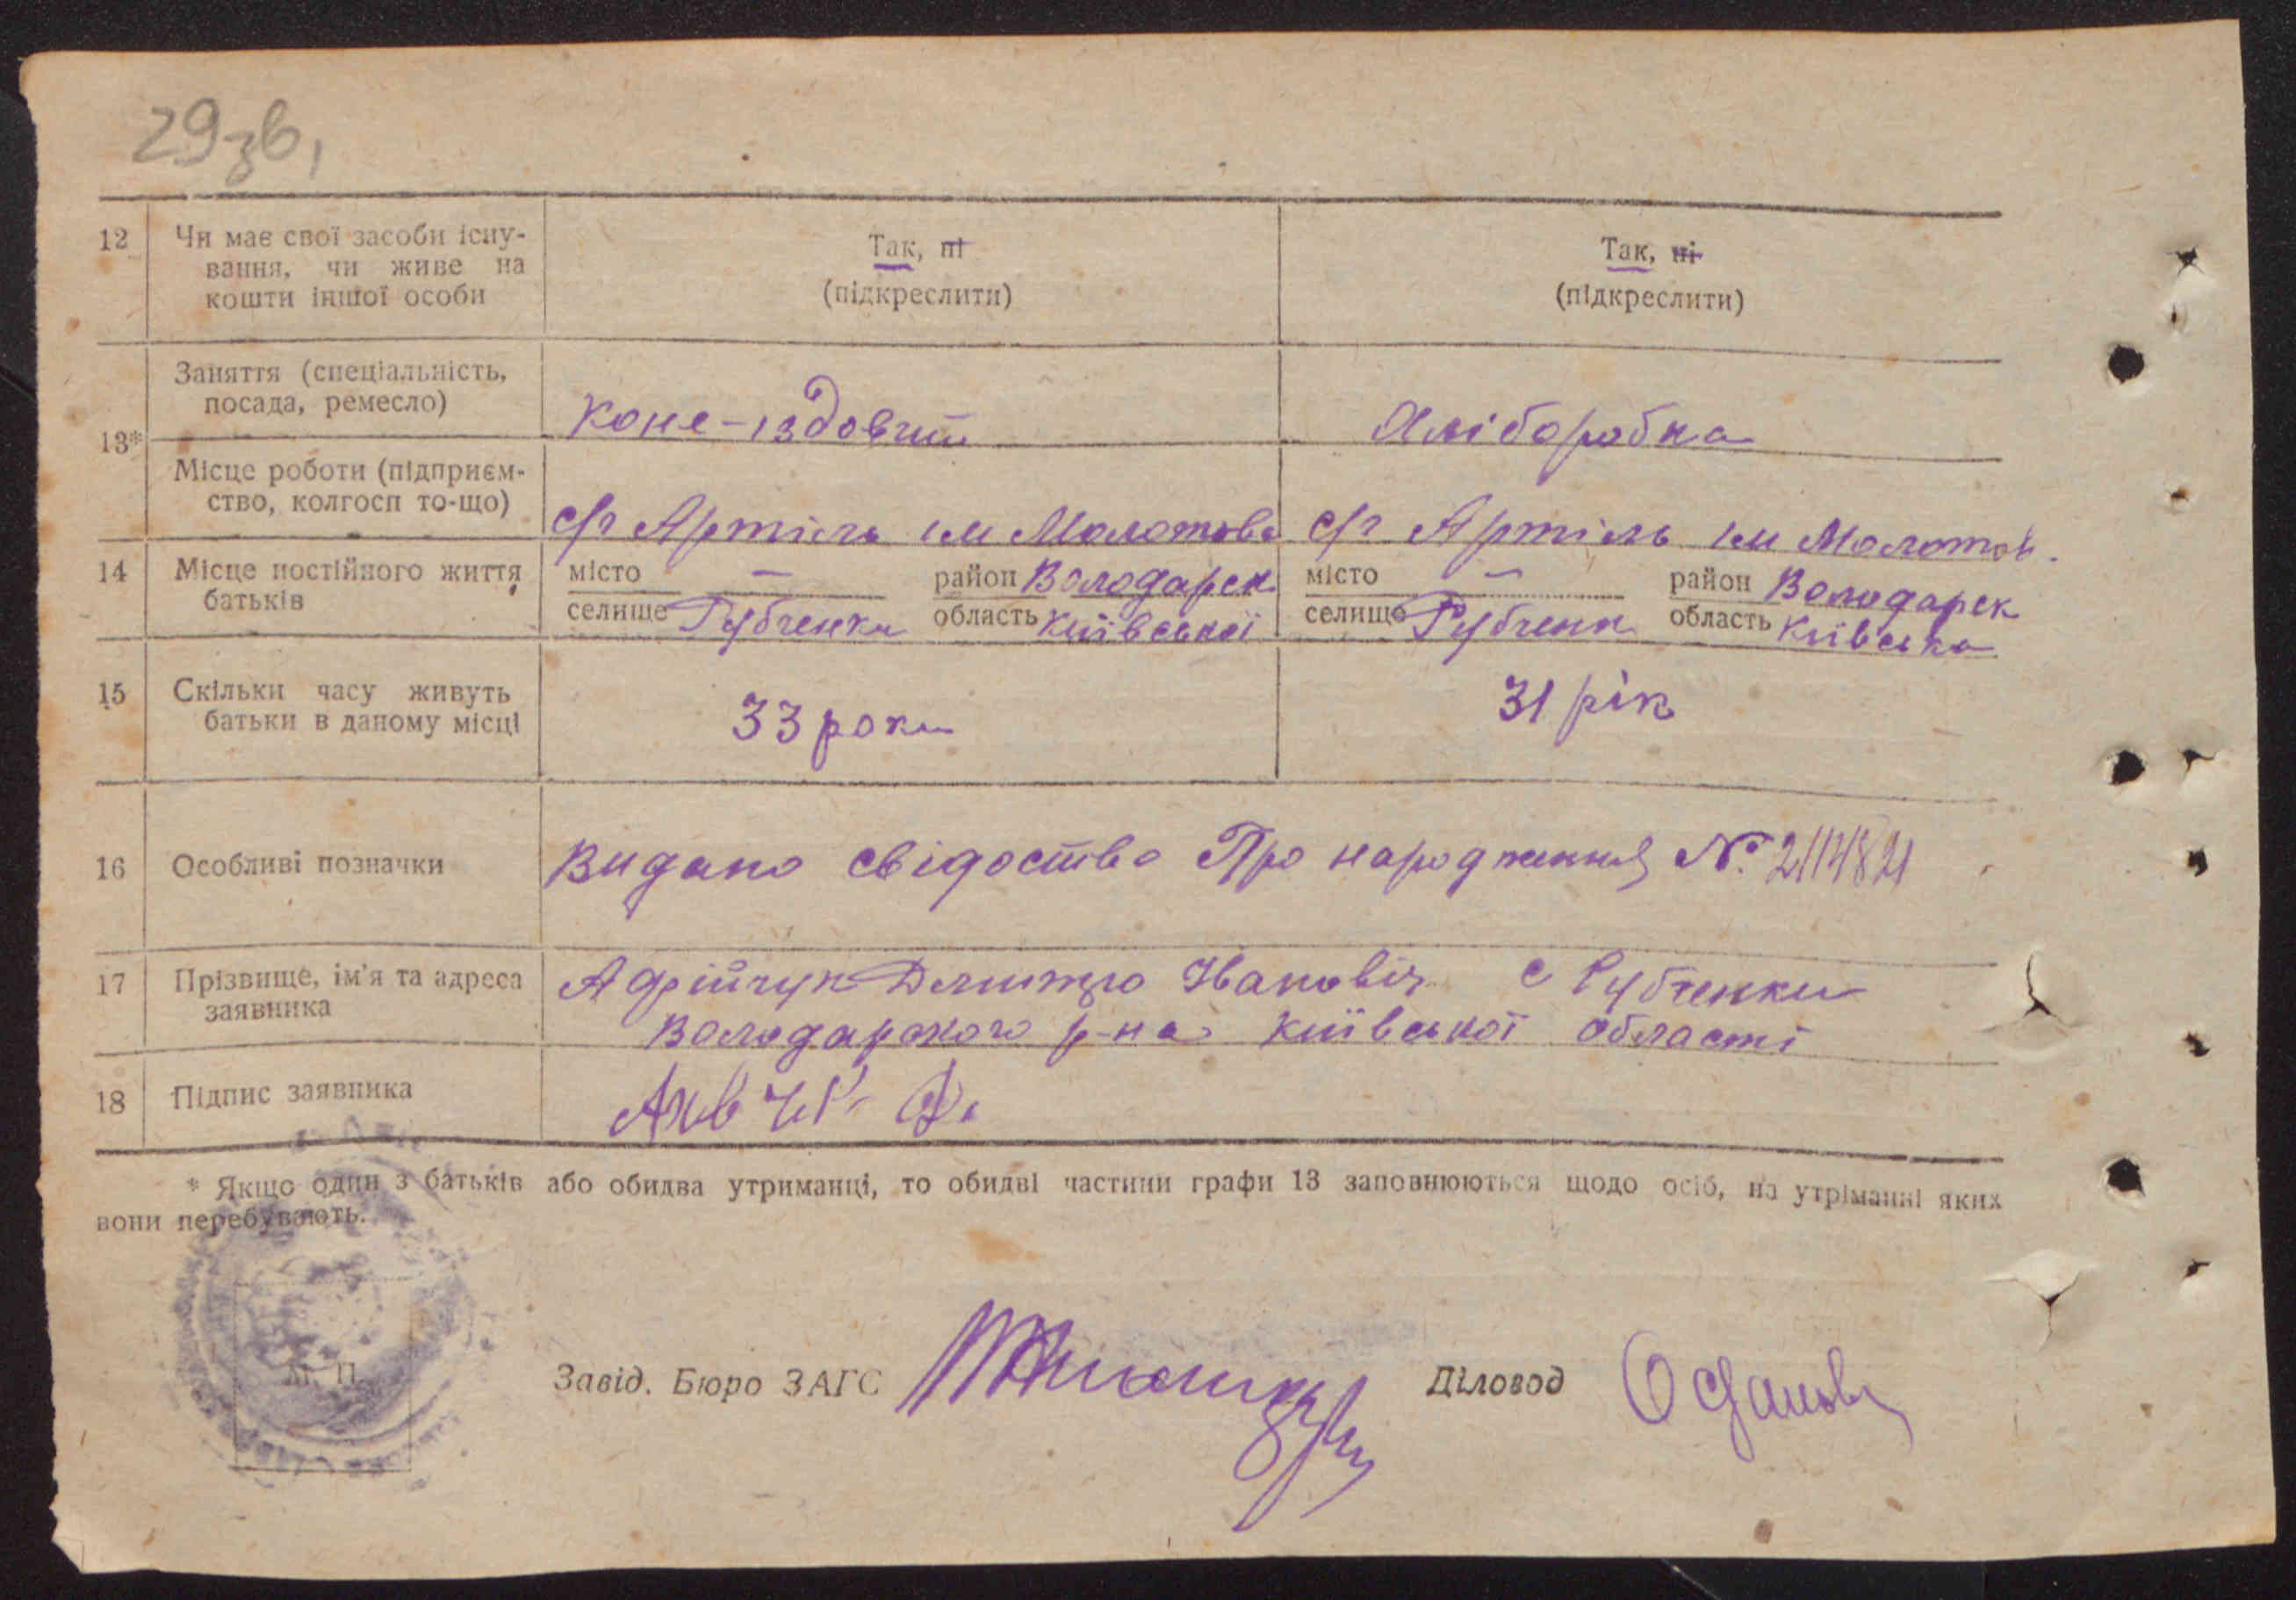 29 зв,
12 Чи має свої засоби існу-
вання, чи живе на
кошти іншої особи
Так, ні
(підкреслити)
Так, ні
(підкреслити)
13*
Заняття (спеціальність,
посада, ремесло)
Коне-їздовчий
Хліборобка
Місце роботи (підприєм-
ство, колгосп то-що)
с/г Артіль ім Молотова
с/г Артіль ім Молотов.
14 Місце постійного життя
батьків
місто — район Володарск
селище Рубченки область Київської
місто — район Володарск
селище Рубченк область Київська
15 Скільки часу живуть
батьки в даному місці
33 роки
31 рік
16 Особливі позначки
Видано свідоство Про народження №
17 Прізвище, ім'я та адреса
заявника
Дмитро Іванович с Рубченки
Володарского р-на Київської області
18 Підпис заявника
* Якщо один з батьків або обидва утриманці, то обидві частини графи 13 заповнюються щодо осіб, на утріманні яких
вони перебувають.
М П
Завід. Бюро ЗАГС
Діловод